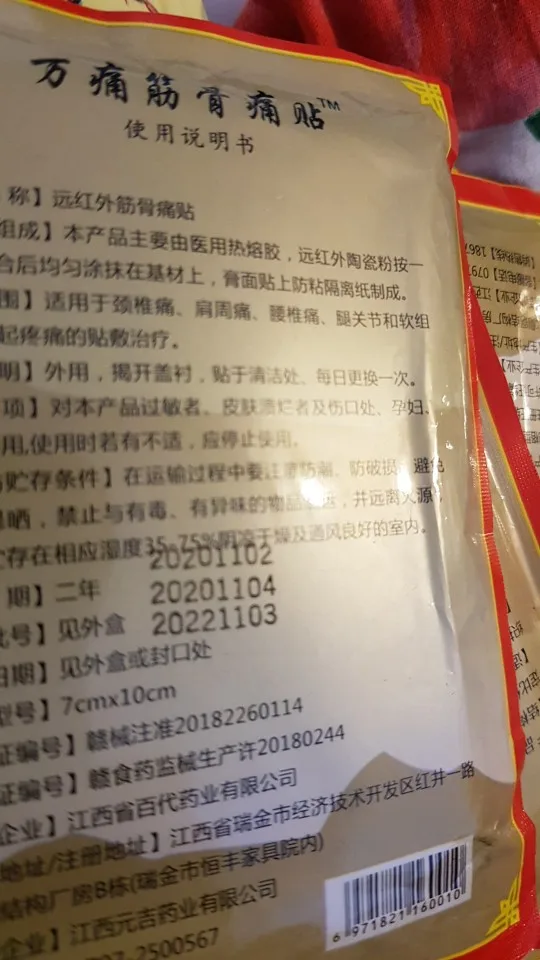 万痛筋骨痛贴™
使用说明书
称】远红外筋骨痛贴
组成】本产品主要由医用热熔胶，远红外陶瓷粉按一
合后均匀涂抹在基材上，膏面贴上防粘隔离纸制成。
围】适用于颈椎痛、肩周痛、腰椎痛、腿关节和软组
起疼痛的贴敷治疗。
明】外用，揭开盖衬，贴于清洁处、每日更换一次。
项】对本产品过敏者、皮肤溃烂者及伤口处、孕妇、
用,使用时若有不适，应停止使用。
贮存条件】在运输过程中要注意防潮、防破损、避免
晒，禁止与有毒、有异味的物品 ，并远离火源，
贮存在相应湿度35-75%阴凉干燥及通风良好的室内。
20201102
期】二年 20201104
批号】见外盒 20221103
日期】见外盒或封口处
型号】7cmx10cm
证编号】赣械注准20182260114
证编号】赣食药监械生产许20180244
企业】江西省百代药业有限公司
地址/注册地址】江西省瑞金市经济技术开发区红井一路
结构厂房B栋(瑞金市恒丰家具院内)
企业】江西元吉药业有限公司
97-2500567
6 971821 160010